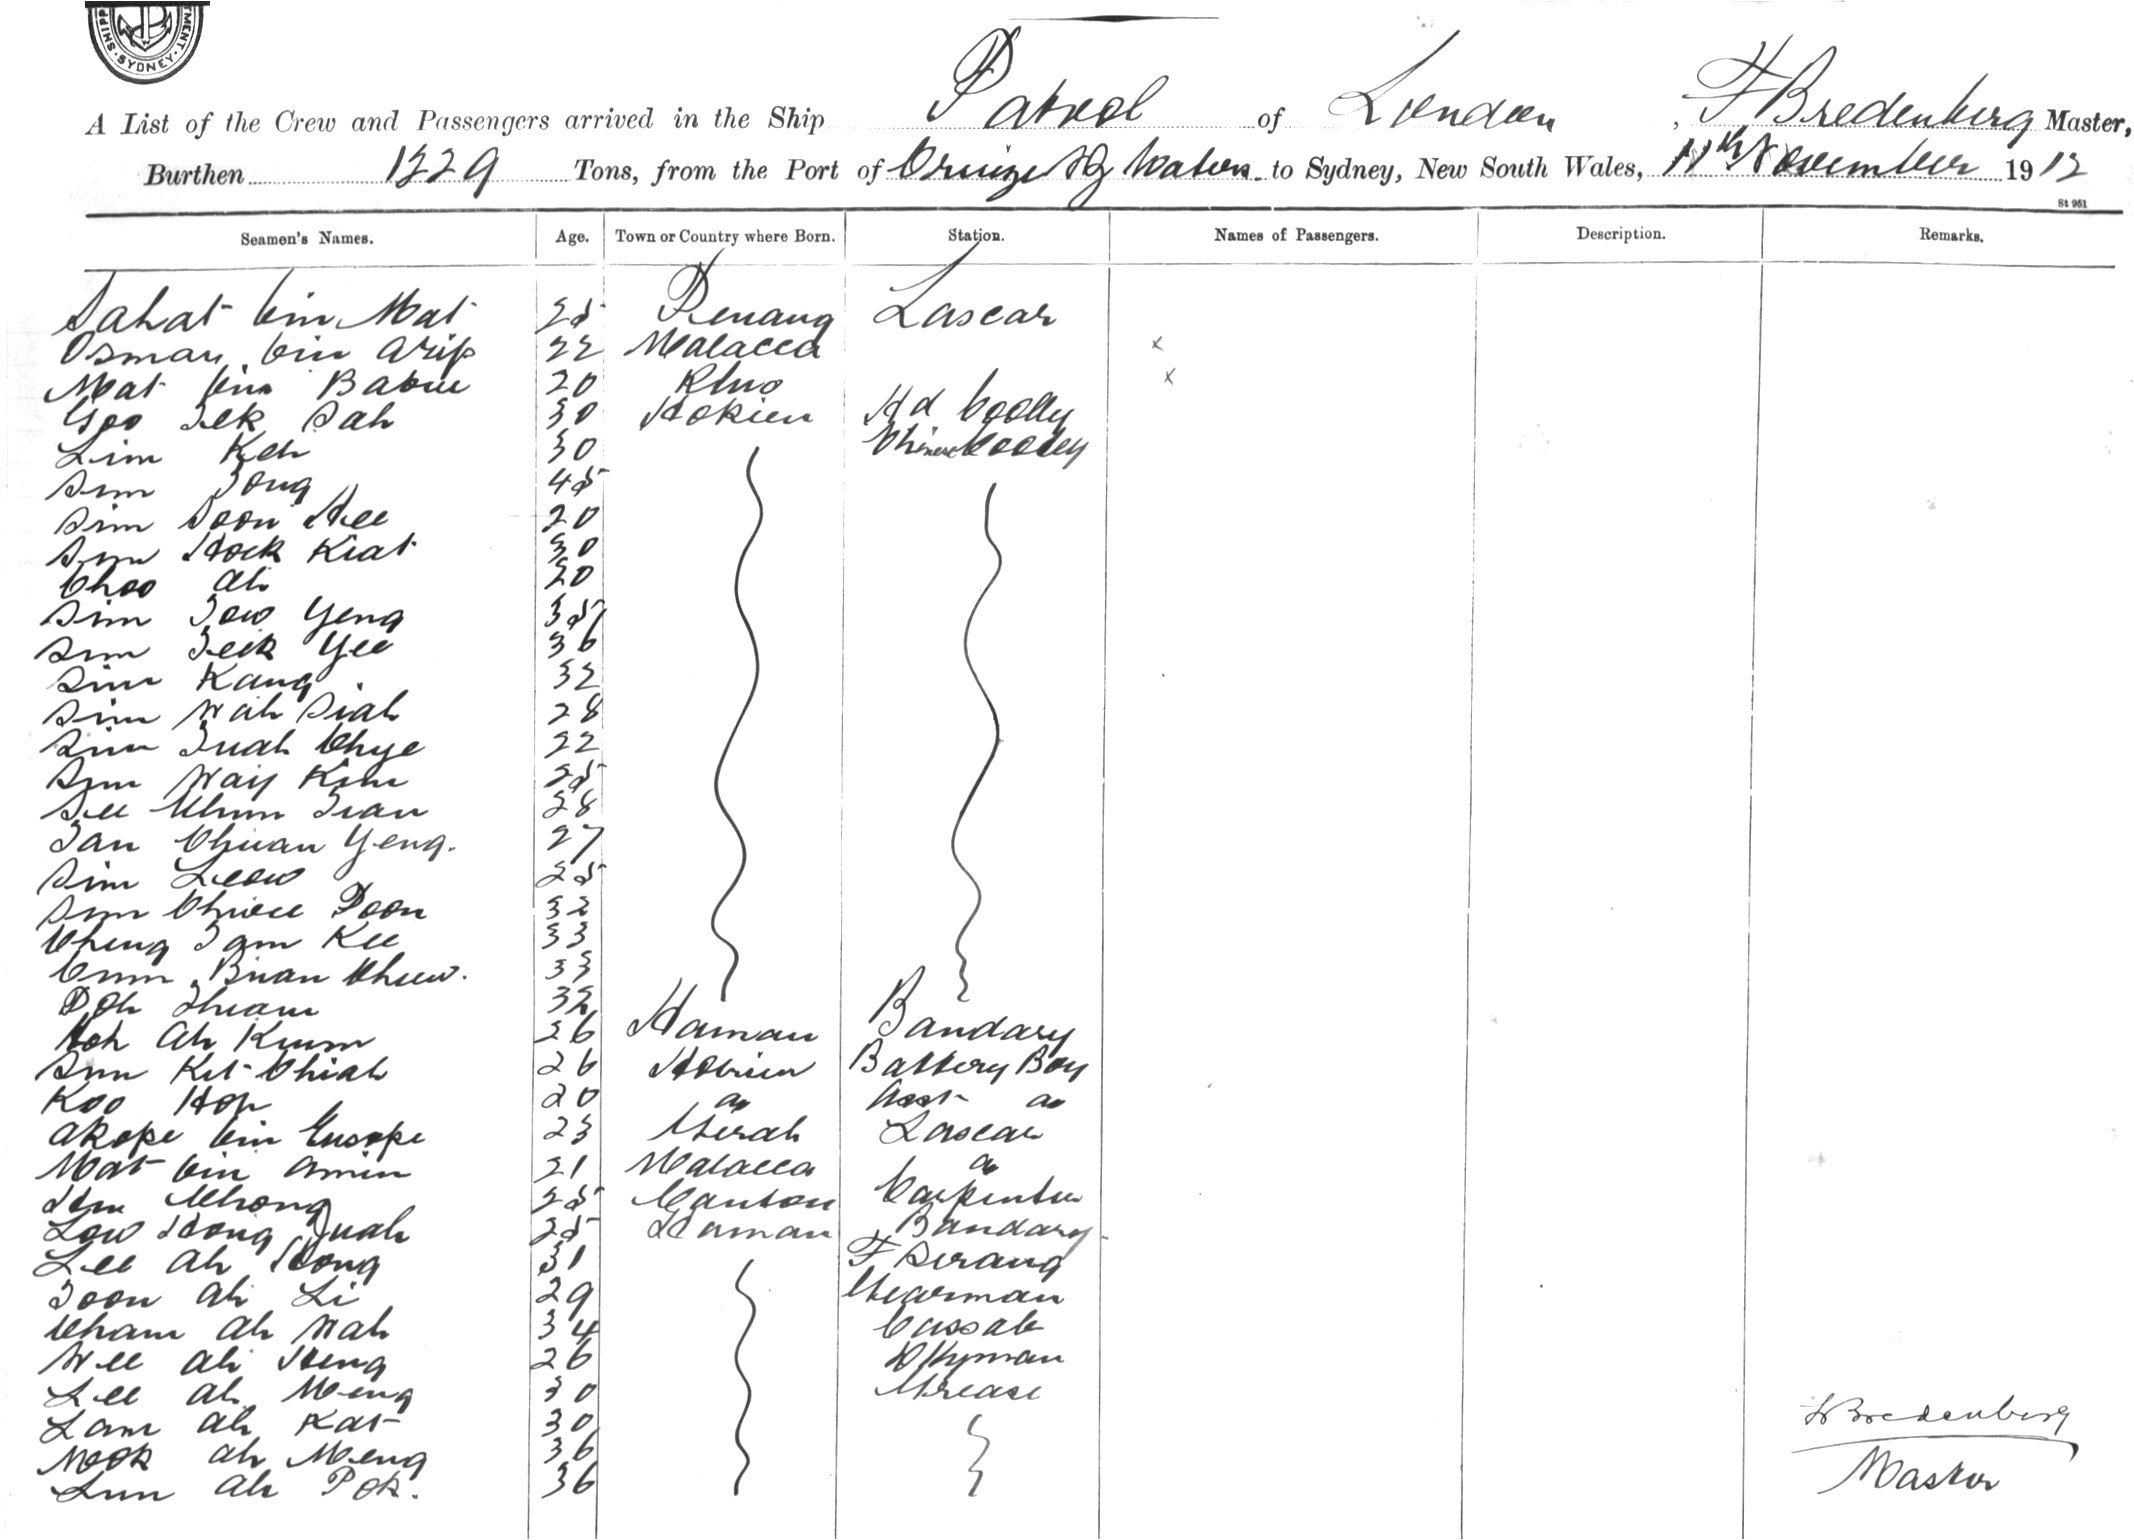 SHIPP TMENT. SYDNEY
A List of the Crew and Passengers arrived in the Ship Patrol of London, F Bredenberg Master,
Burthen 1229 Tons, from the Port of to Sydney, New South Wales, 11th November 1912
St 951
Seamen's Names. Age. Town or Country where Born. Station. Names of Passengers. Description. Remarks.
Sahat bin Mat 25 Penang Lascar
Osman bin Arip 22 Malacca x
Mat bin 20 x
Goo Tek Sah 30 Hokien Hd Cooly
Lim Keh 30 Chinese Cooley
Sim Tong 45
Sim Soon Hee 20
Sim Hock Kiat 30
Choo Ah 20
Sim Tow Yeng 35
Sim Teik Yee 36
Sim Kang 32
Sim Wah Siah 28
Sim Tuah Chye 22
Sim Way Kim 25
See Chun Tian 28
Tan Chuan Yeng. 27
Sim Leow 25
Sim Poon 32
Cheng Tam Kee 33
Buan Chuw. 33
Poh Thiam 32
Hoh Ah Kum 26 Haman Bandary
Sim Kit Chiah 26 Battery Boy
Koo Hop 20 do Asst do
Akope bin Eusope 23 Perak Lascar
Mat bin Amin 21 Malacca do
Chong 25 Canton Carpenter
Low Hong Juah 25 Haman Bandary
Lee Ah Hong 31 F Serang
Toon Ah Li 29
Cham Ah Wah 34 Cassab
Wee Ah Heng 26 Dkyman
Lee Ah Meng 30 Grease
Lam Ah Kat 30
Mok Ah Meng 36
Lun Ah Pok. 36
F Bredenberg
Master